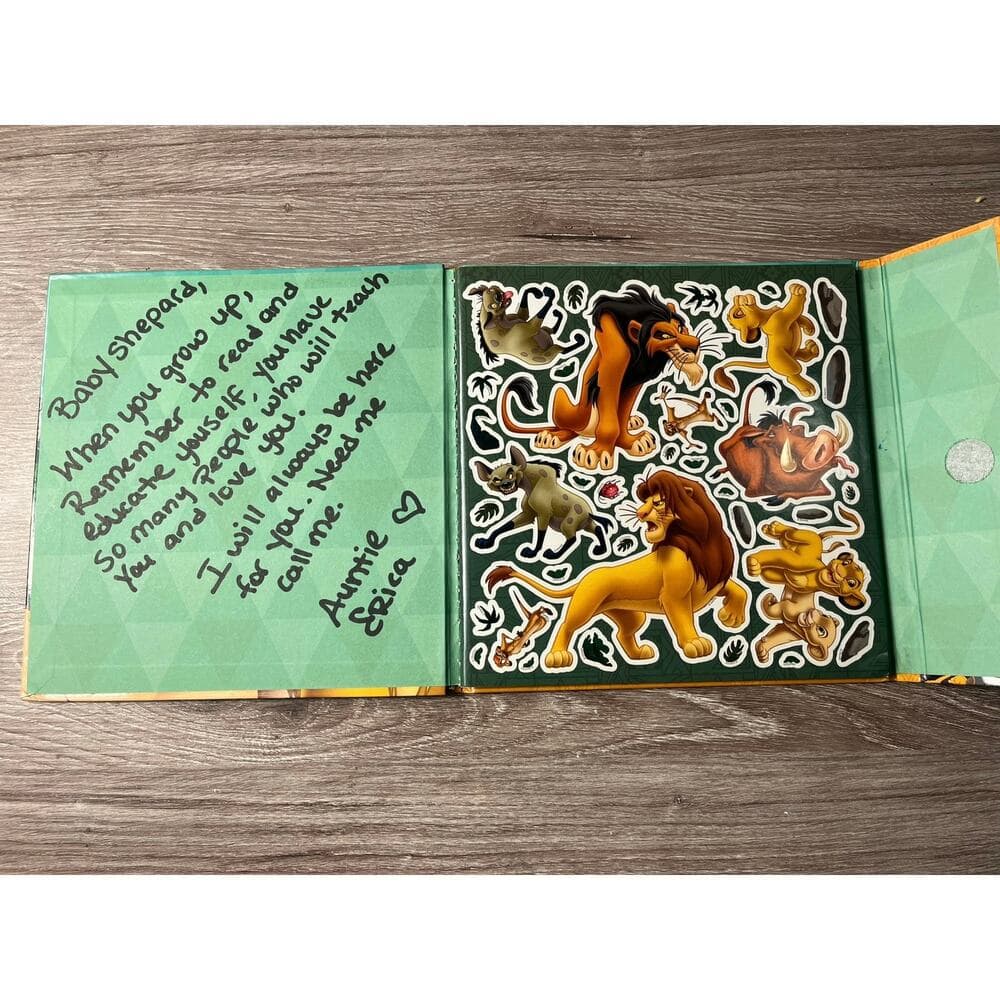 Baby Shepard,
When you grow up,
Remember to read and
educate youself, you have
So many people, who will teach
You and love you.
I will always be here
for you. Need me
call me.
Auntie ♡
Erica